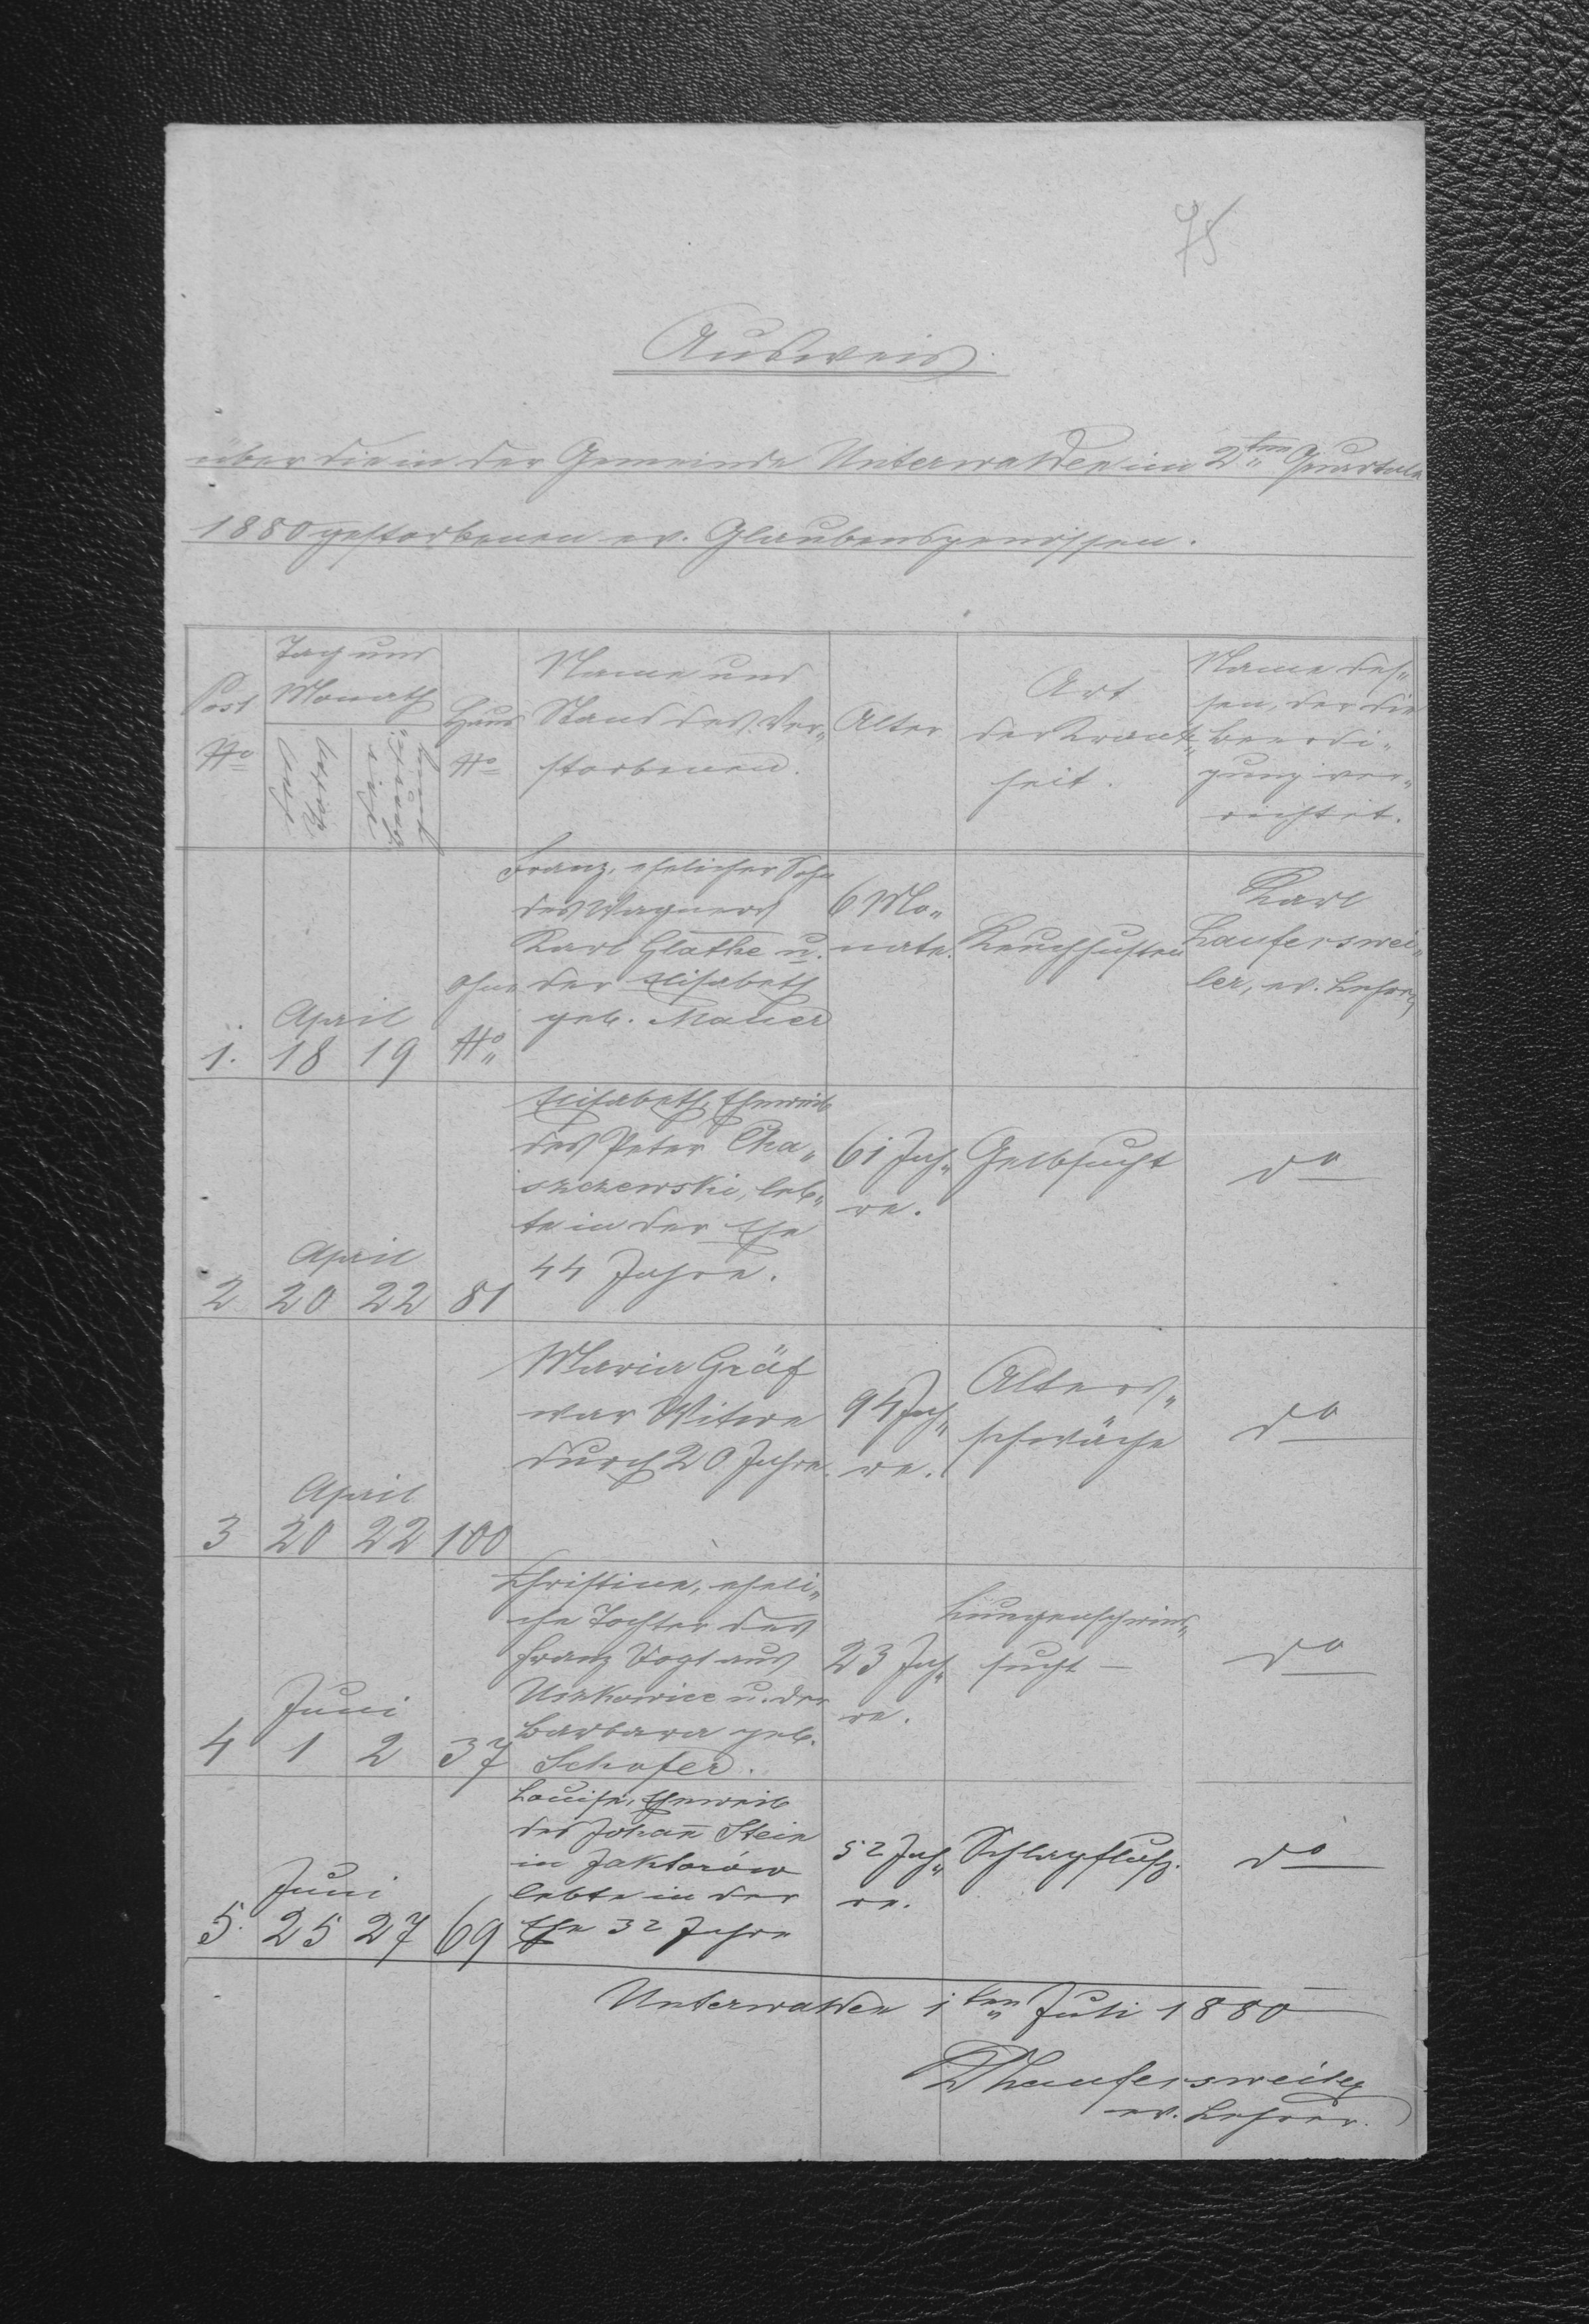 75
Ausweis.
über die in der Gemeinde Unterwalden im 2ten Quartale
1880 gestorbenen ev. Glaubensgenossen.
Post No
Tag und Monath
des Todes
der Beerdi„gung
Haus No
Name und
Stand des Ver„
storbenen.
Alter
Art
der Krank„
heit.
Name des„
sen, der die
Beerdi„
gung ver„
richtet.
Franz, ehelicher Sohn
des Wagners
Karl Glathe u.
der Elisabeth
geb. Mauer
6 Mo„
nate.
Keuchhusten
Karl
Laufерswei„
ler, ev. Lehrer
ohne No
April
1. 18 19
Elisabeth, Eheweib
des Peter Cha„
szczewski, leb„
te in der Ehe
44 Jahre.
61 Jah„
re.
Gelbsucht
do
April
2 20 22 81
Maria Gräf
war Witwe
durch 20 Jahre.
94 Jah„
re.
Alters„
schwäche
do
April
3 20 22 100
Christine, eheli„
che Tochter des
Franz Vogt aus
Uszkowice u. der
Barbara geb.
Schafer.
23 Jah„
re.
Lungenschwind„
sucht —
do
Juni
4 1 2 37
Louise, Eheweib
des Johann Stein
in Jaktorów
lebte in der
Ehe 32 Jahre
52 Jah„
re.
Schlagfluß.
do
Juni
5. 25 27 69
Unterwalden 1ten Juli 1880
Laufersweiler
ev. Lehrer.